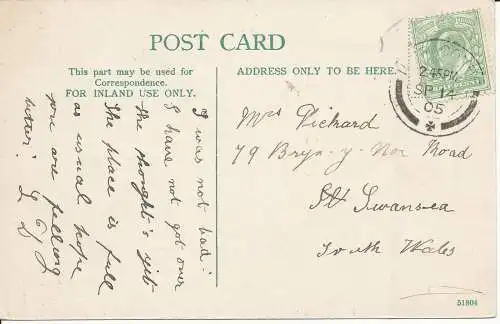 POST CARD
This part may be used for
Correspondence.
FOR INLAND USE ONLY.
ADDRESS ONLY TO BE HERE.
2.45PM
SP 12
05
I was not bad!
I have not got over
the thought's yet
The place is full
as usual hope
you are feeling
better!
Mrs Pickard
79 Bryn-y-Nor Road
Swansea
South Wales
51804